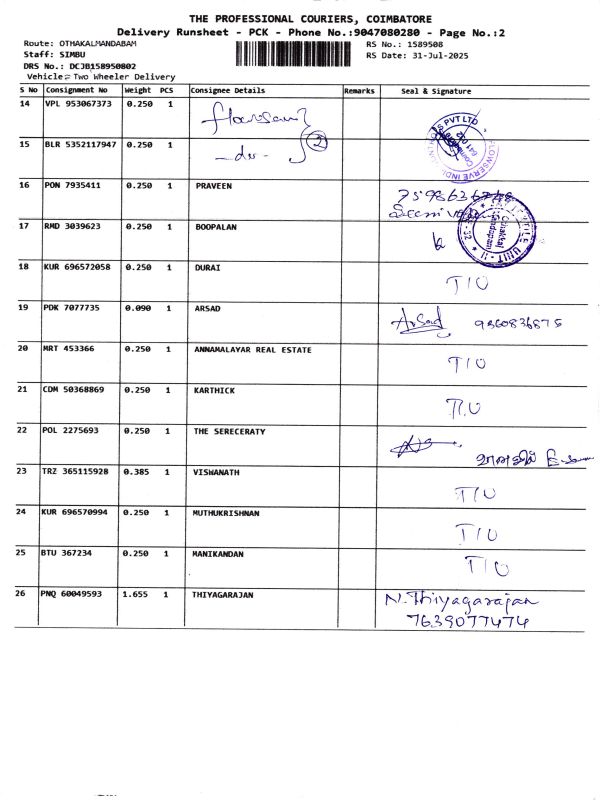 THE PROFESSIONAL COURIERS, COIMBATORE
Delivery Runsheet - PCK - Phone No.:9047080280 - Page No.:2
Route: OTHAKALMANDABAM
Staff: SIMBU
DRS No.: DCJB158950802
Vehicle:- Two Wheeler Delivery
RS No.: 1589508
RS Date: 31-Jul-2025
S No Consignment No Weight PCS Consignee Details Remarks Seal & Signature
14 VPL 953067373 0.250 1
15 BLR 5352117947 0.250 1 -do- 2
16 PON 7935411 0.250 1 PRAVEEN
17 RMD 3039623 0.250 1 BOOPALAN
18 KUR 696572058 0.250 1 DURAI T/U
19 PDK 7077735 0.090 1 ARSAD Arsad 9360836875
20 MRT 453366 0.250 1 ANNAMALAYAR REAL ESTATE T/U
21 CDM 50368869 0.250 1 KARTHICK T/U
22 POL 2275693 0.250 1 THE SERECERATY
23 TRZ 365115928 0.385 1 VISWANATH T/U
24 KUR 696570994 0.250 1 MUTHUKRISHNAN T/U
25 BTU 367234 0.250 1 MANIKANDAN T/U
26 PNQ 60049593 1.655 1 THIYAGARAJAN N. Thiyagarajan
7639077474